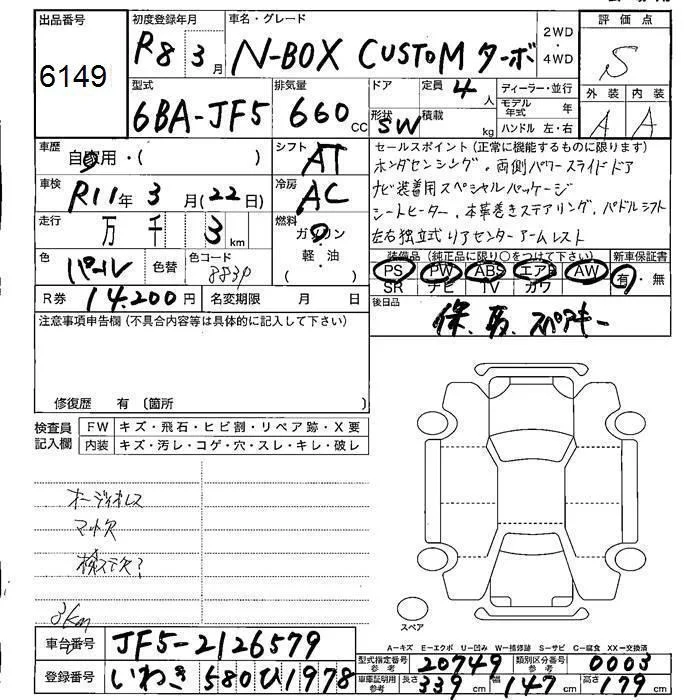 出品番号
6149
初度登録年月
R8 3月
車名・グレード
N-BOX CUSTOM ターボ
2WD
・
4WD
評価点
S
外装 内装
A A
型式
6BA-JF5
排気量
660 cc
ドア
定員 4人
形状 SW
積載 kg
ディーラー・並行
モデル年式 年
ハンドル 左・右
車歴
自家用・( )
シフト
AT
車検
R11年 3月(22日)
冷房
AC
走行
万 千 3 km
燃料
ガソリン
・軽・油
( )
色
パール
色替
色コード
883P
R券 14.200円
名変期限 月 日
セールスポイント(正常に機能するものに限ります)
ホンダセンシング・両側パワースライドドア
ナビ装着用スペシャルパッケージ
シートヒーター、本革巻きステアリング、パドルシフト
左右独立式リアセンターアームレスト
装備品(純正品に限り○をつけて下さい)
PS PW ABS エアB AW
SR ナビ TV カワ
新車保証書
有・無
後日品
保、取、スペアキー
注意事項申告欄(不具合内容等は具体的に記入して下さい)
修復歴 有 〔箇所
検査員記入欄
FW キズ・飛石・ヒビ割・リペア跡・X要
内装 キズ・汚レ・コゲ・穴・スレ・キレ・破レ
オーディオレス
マット欠
検ステ欠?
3km
スペア
A―キズ E―エクボ U―凹み W―補修跡 S―サビ C―腐食 XX―交換済
車台番号 JF5-2126579
登録番号 いわき 580 ひ 1978
型式指定番号参考 20749
類別区分番号参考 0003
車庫証明用参考 長さ 339cm 幅 147cm 高さ 179cm